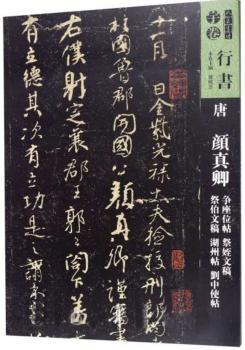 行書
唐 顏真卿
争座位帖 祭姪文稿
祭伯文稿 湖州帖 劉中使帖
十一月 日金紫光祿大夫檢校刑部尚
柱國魯郡開國公顏真卿謹奉書
右僕射定襄郡王郭公閣下蓋
有立德其次有立功是之謂